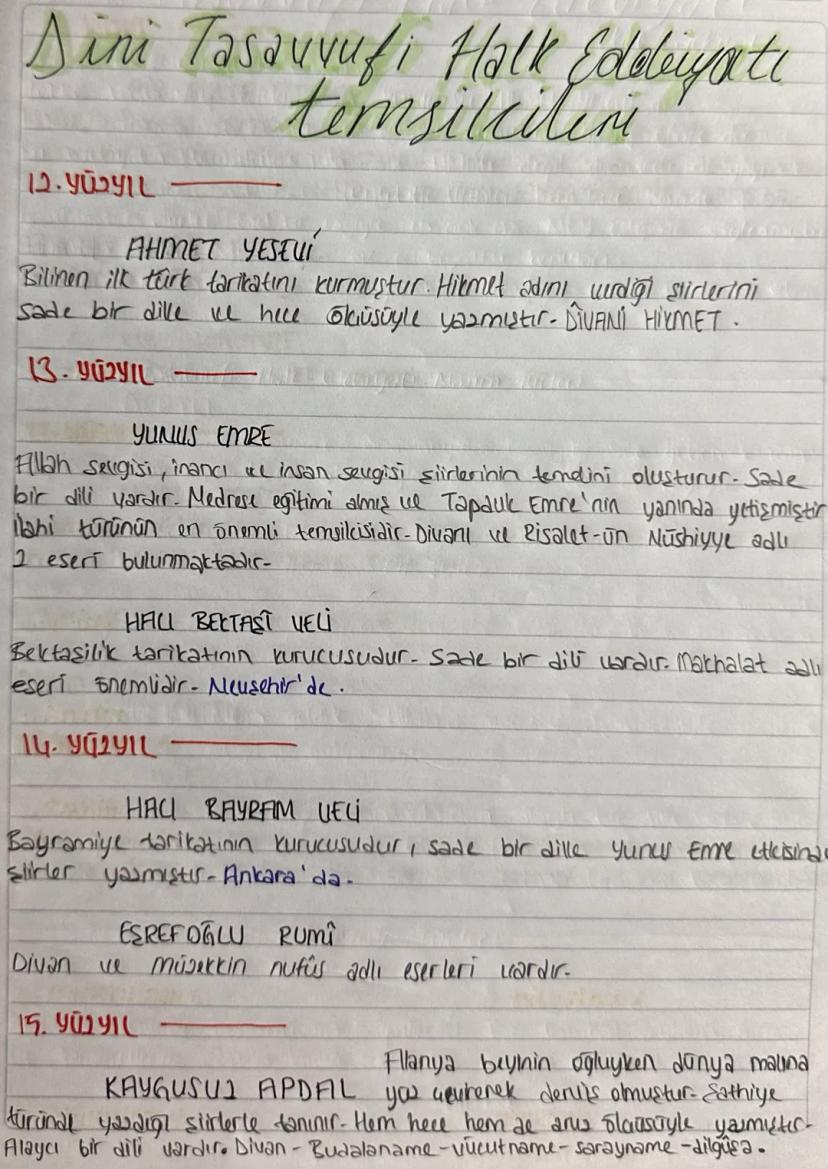 Dini Tasavvufi Halk Edebiyatı
temsilcileri
12. YÜZYIL
AHMET YESEVİ
Bilinen ilk türk tarikatını kurmuştur. Hikmet adını verdiği şiirlerini
sade bir dille ve hece ölçüsüyle yazmıştır- DÎVANİ HİKMET.
13. YÜZYIL
YUNUS EMRE
Allah sevgisi, inancı ve insan sevgisi şiirlerinin temelini oluşturur- Sade
bir dili vardır- Medrese eğitimi almış ve Tapduk Emre'nin yanında yetişmiştir
ilahi türünün en önemli temsilcisidir- Divanı ve Risalet-ün Nüshiyye adlı
2 eseri bulunmaktadır-
HACI BEKTAŞİ VELİ
Bektaşilik tarikatının kurucusudur- Sade bir dili vardır- Makhalat adlı
eseri önemlidir- Nevşehir'de.
14. YÜZYIL
HACI BAYRAM VELİ
Bayramiye tarikatının kurucusudur, sade bir dille Yunus Emre etkisinde
şiirler yazmıştır- Ankara'da.
EŞREFOĞLU RUMÎ
Divan ve müzekkin nufûs adlı eserleri vardır-
15. YÜZYIL
Alanya beyinin oğluyken dünya malına
KAYGUSUZ APDAL yüz çevirerek derviş olmuştur- Şathiye
türünde yazdığı şiirlerle tanınır- Hem hece hem de aruz ölçüsüyle yazmıştır-
Alaycı bir dili vardır. Divan - Budalaname - vücutname - sarayname - dilgûşa.